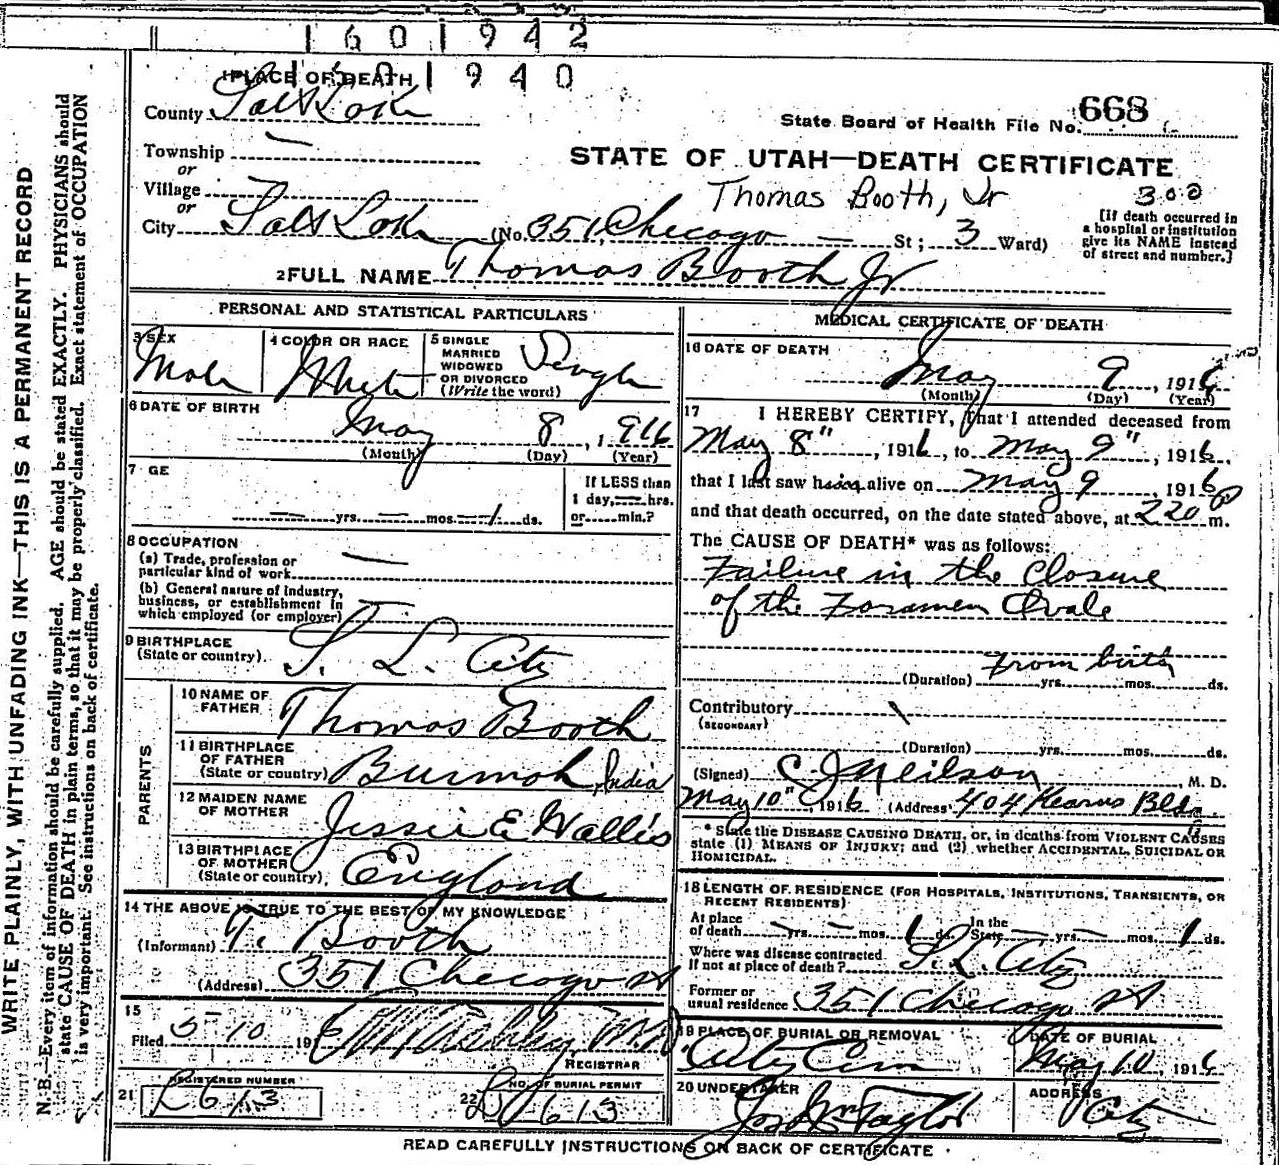 1601942
1PLACE OF DEATH
1601940
County Salt Lake
State Board of Health File No. 668
Township —
or
Village
or
City Salt Lake
STATE OF UTAH—DEATH CERTIFICATE
Thomas Booth, Jr
300
[If death occurred in
a hospital or institution
give its NAME instead
of street and number.]
(No. 351 Checogo — St; 3 Ward)
2FULL NAME Thomas Booth Jr
PERSONAL AND STATISTICAL PARTICULARS
3 SEX
Male
4 COLOR OR RACE
White
5 SINGLE
MARRIED
WIDOWED
OR DIVORCED
(Write the word)
Single
6 DATE OF BIRTH
May 8, 1916
(Month) (Day) (Year)
7 GE
— yrs. — mos. 1 ds.
If LESS than
1 day, — hrs.
or min.?
8 OCCUPATION
(a) Trade, profession or
particular kind of work —
(b) General nature of industry,
business, or establishment in
which employed (or employer)
9 BIRTHPLACE
(State or country) S. L. City
PARENTS
10 NAME OF
FATHER
Thomas Booth
11 BIRTHPLACE
OF FATHER
(State or country) Burmah, India
12 MAIDEN NAME
OF MOTHER
Jessie E Wallis
13 BIRTHPLACE
OF MOTHER
(State or country) England
14 THE ABOVE IS TRUE TO THE BEST OF MY KNOWLEDGE
(Informant) T. Booth
(Address) 351 Checogo st
15
Filed 5-10 191 6 M.D.
REGISTRAR
21 REGISTERED NUMBER
L613
22 NO. OF BURIAL PERMIT
613
MEDICAL CERTIFICATE OF DEATH
16 DATE OF DEATH
May 9, 1916
(Month) (Day) (Year)
17 I HEREBY CERTIFY, That I attended deceased from
May 8", 1916, to May 9", 1916,
that I last saw him alive on May 9, 1916
and that death occurred, on the date stated above, at 220 P m.
The CAUSE OF DEATH* was as follows:
Failure in the Closure
of the Foramen Ovale
From birth
(Duration) yrs. mos. ds.
Contributory
(SECONDARY)
(Duration) yrs. mos. ds.
(Signed) C J Neilson, M. D.
May 10", 1916 (Address) 404 Kearns Bldg.
* State the DISEASE CAUSING DEATH, or, in deaths from VIOLENT CAUSES
state (1) MEANS OF INJURY; and (2) whether ACCIDENTAL, SUICIDAL OR
HOMICIDAL.
18 LENGTH OF RESIDENCE (FOR HOSPITALS, INSTITUTIONS, TRANSIENTS, OR
RECENT RESIDENTS)
At place
of death — yrs. — mos. 1 ds.
In the
State — yrs. — mos. 1 ds.
Where was disease contracted
If not at place of death? S. L. City
Former or
usual residence 351 Checago st
19 PLACE OF BURIAL OR REMOVAL
City Cem
DATE OF BURIAL
May 10, 1916
20 UNDERTAKER
Jos Wm Taylor
ADDRESS
City
READ CAREFULLY INSTRUCTIONS ON BACK OF CERTIFICATE
WRITE PLAINLY, WITH UNFADING INK—THIS IS A PERMANENT RECORD
N. B.—Every item of information should be carefully supplied. AGE should be stated EXACTLY. PHYSICIANS should
state CAUSE OF DEATH in plain terms, so that it may be properly classified. Exact statement of OCCUPATION
is very important. See instructions on back of certificate.